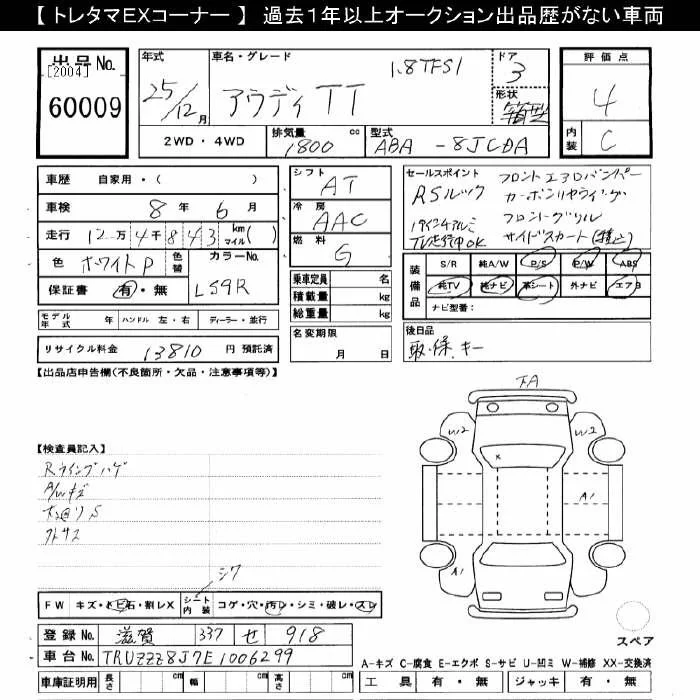 【 トレタマEXコーナー 】 過去1年以上オークション出品歴がない車両
出品No.
[2004]
60009
年式
25/12月
車名・グレード
1.8TFSI
アウディ TT
ドア
3
形状
箱型
評価点
4
内装
C
2WD・4WD
排気量
1800 cc
型式
ABA -8JCDA
車歴 自家用・( )
車検 8年 6月
走行 12万4千843 km マイル( )
色 ホワイトP 色替
カラーNo.
LS9R
保証書 有・無
シフト
AT
冷房
AAC
燃料
G
セールスポイント
RSルック
TV走行中OK
フロントエアロバンパー
カーボンリヤウイング
フロントグリル
サイドスカート
乗車定員 名
積載量 kg
総重量 kg
装備品
S/R 純A/W P/S P/W ABS
純TV 純ナビ 革シート 外ナビ エアB
ナビ型番:
モデル年式 年 ハンドル 左・右 ディーラー・並行
リサイクル料金 13810 円 預託済
名変期限
月 日
後日品
取.保.キー
【出品店申告欄(不良箇所・欠品・注意事項等)】
下A
【検査員記入】
Rウイングハゲ
A/Wキズ
W2
W2
A1
A1
シワ
FW キズ・トビ石・割レX シート内装 コゲ・穴・汚レ・シミ・破レ・スレ
登録No. 滋賀 337 せ 918
車台No. TRUZZZ8J7E1006299
車庫証明用 長さ cm 幅 cm 高さ cm
スペア
A-キズ C-腐食 E-エクボ S-サビ U-凹ミ W-補修 XX-交換済
工具 有・無 ジャッキ 有・無